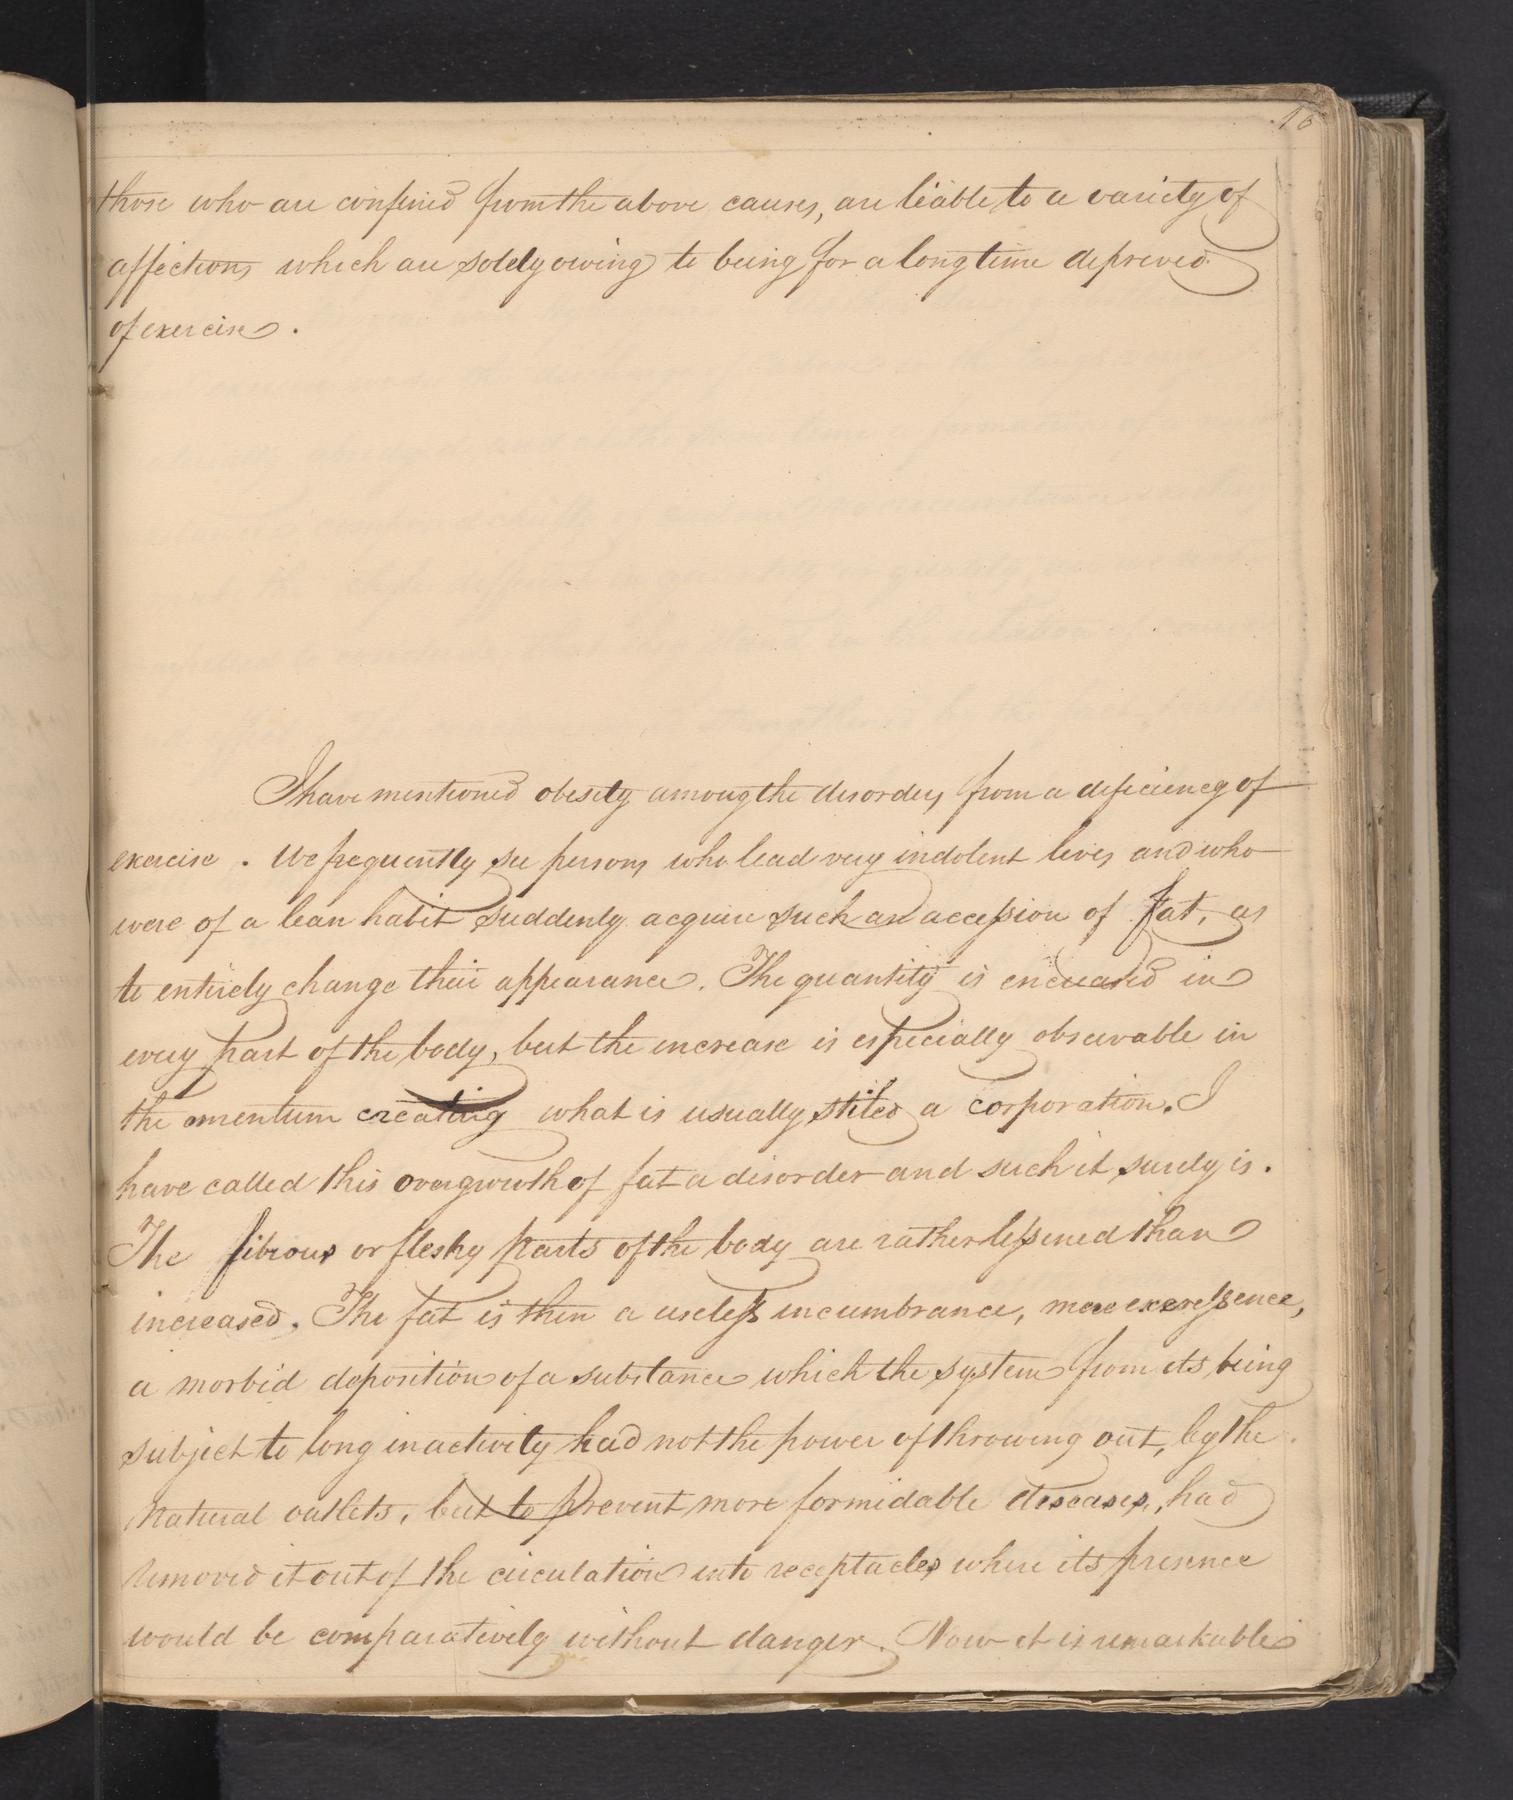 16
those who are confined from the above causes, are liable to a variety of
affections which are solely owing to being for a long time deprived
of exercise.
I have mentioned obesity among the disorders from a deficiency of
exercise. We frequently see persons who lead very indolent lives and who
were of a lean habit suddenly acquire such an accession of fat, as
to entirely change their appearance. The quantity is encreased in
every part of the body, but the increase is especially observable in
the omentum creating what is usually stiled a corporation. I
have called this overgrowth of fat a disorder and such it surely is.
The fibrous or fleshy parts of the body are rather lessened than
increased. The fat is then a useless incumbrance, mere excressence,
a morbid deposition of a substance which the system from its being
subject to long inactivity had not the power of throwing out, by the
natural outlets, but to prevent more formidable diseases, had
removed it out of the circulation into receptacles where its presence
would be comparatively without danger. Now it is remarkable